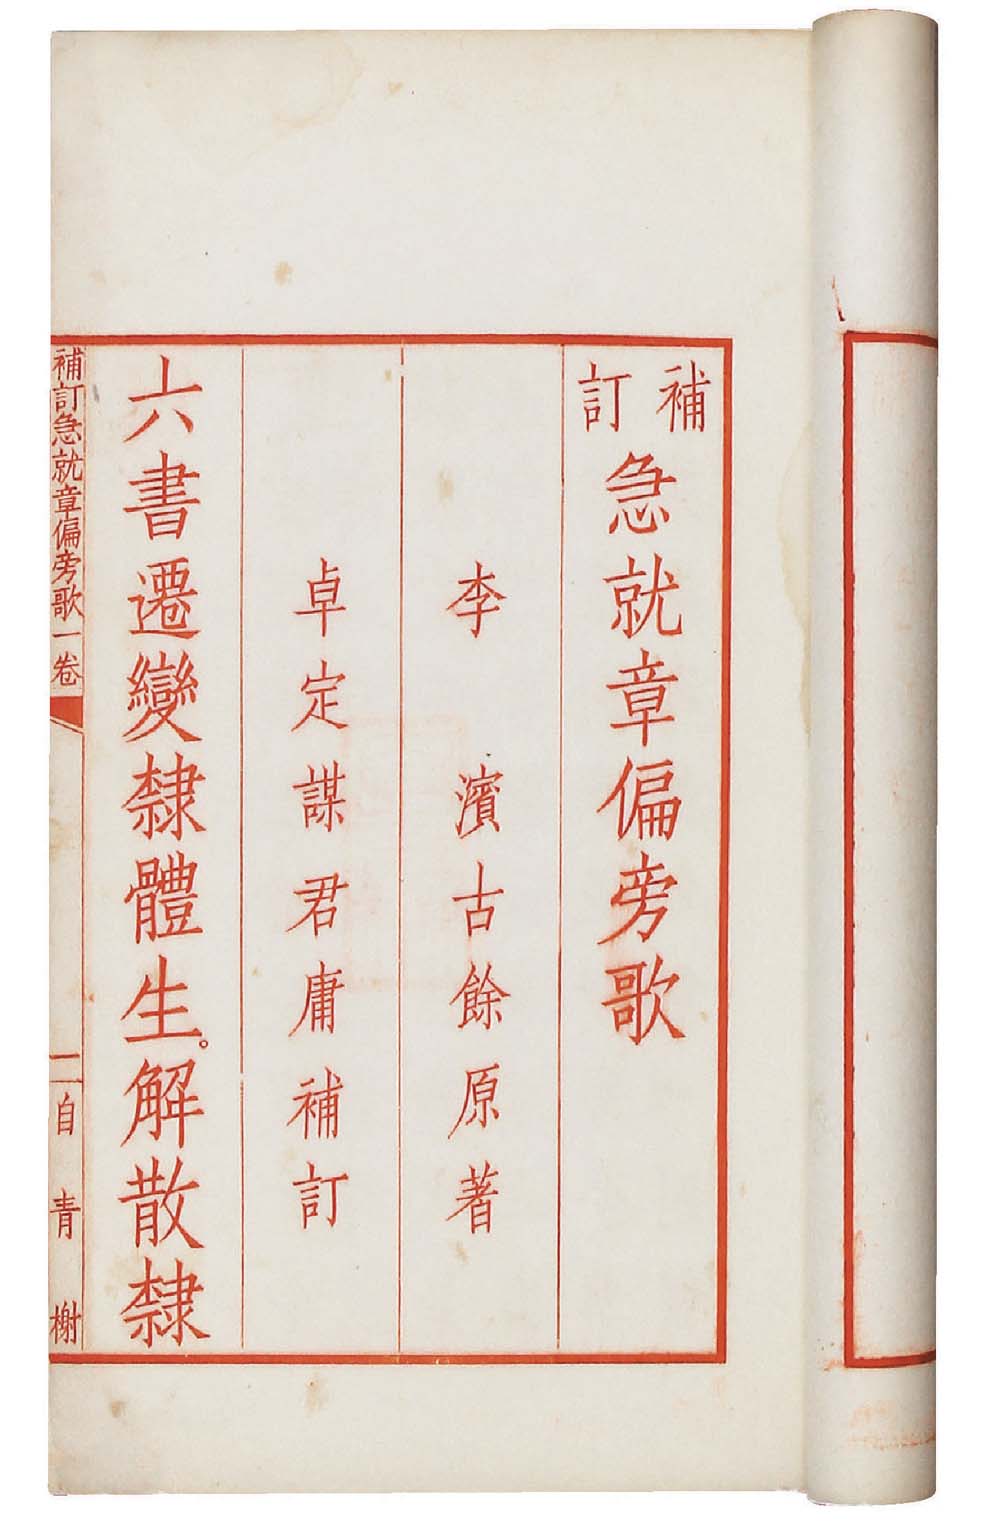 補訂急就章偏旁歌
李濱古餘原著
卓定謀君庸補訂
六書遷變隸體生。解散隸
補訂急就章偏旁歌一卷
一
自青榭